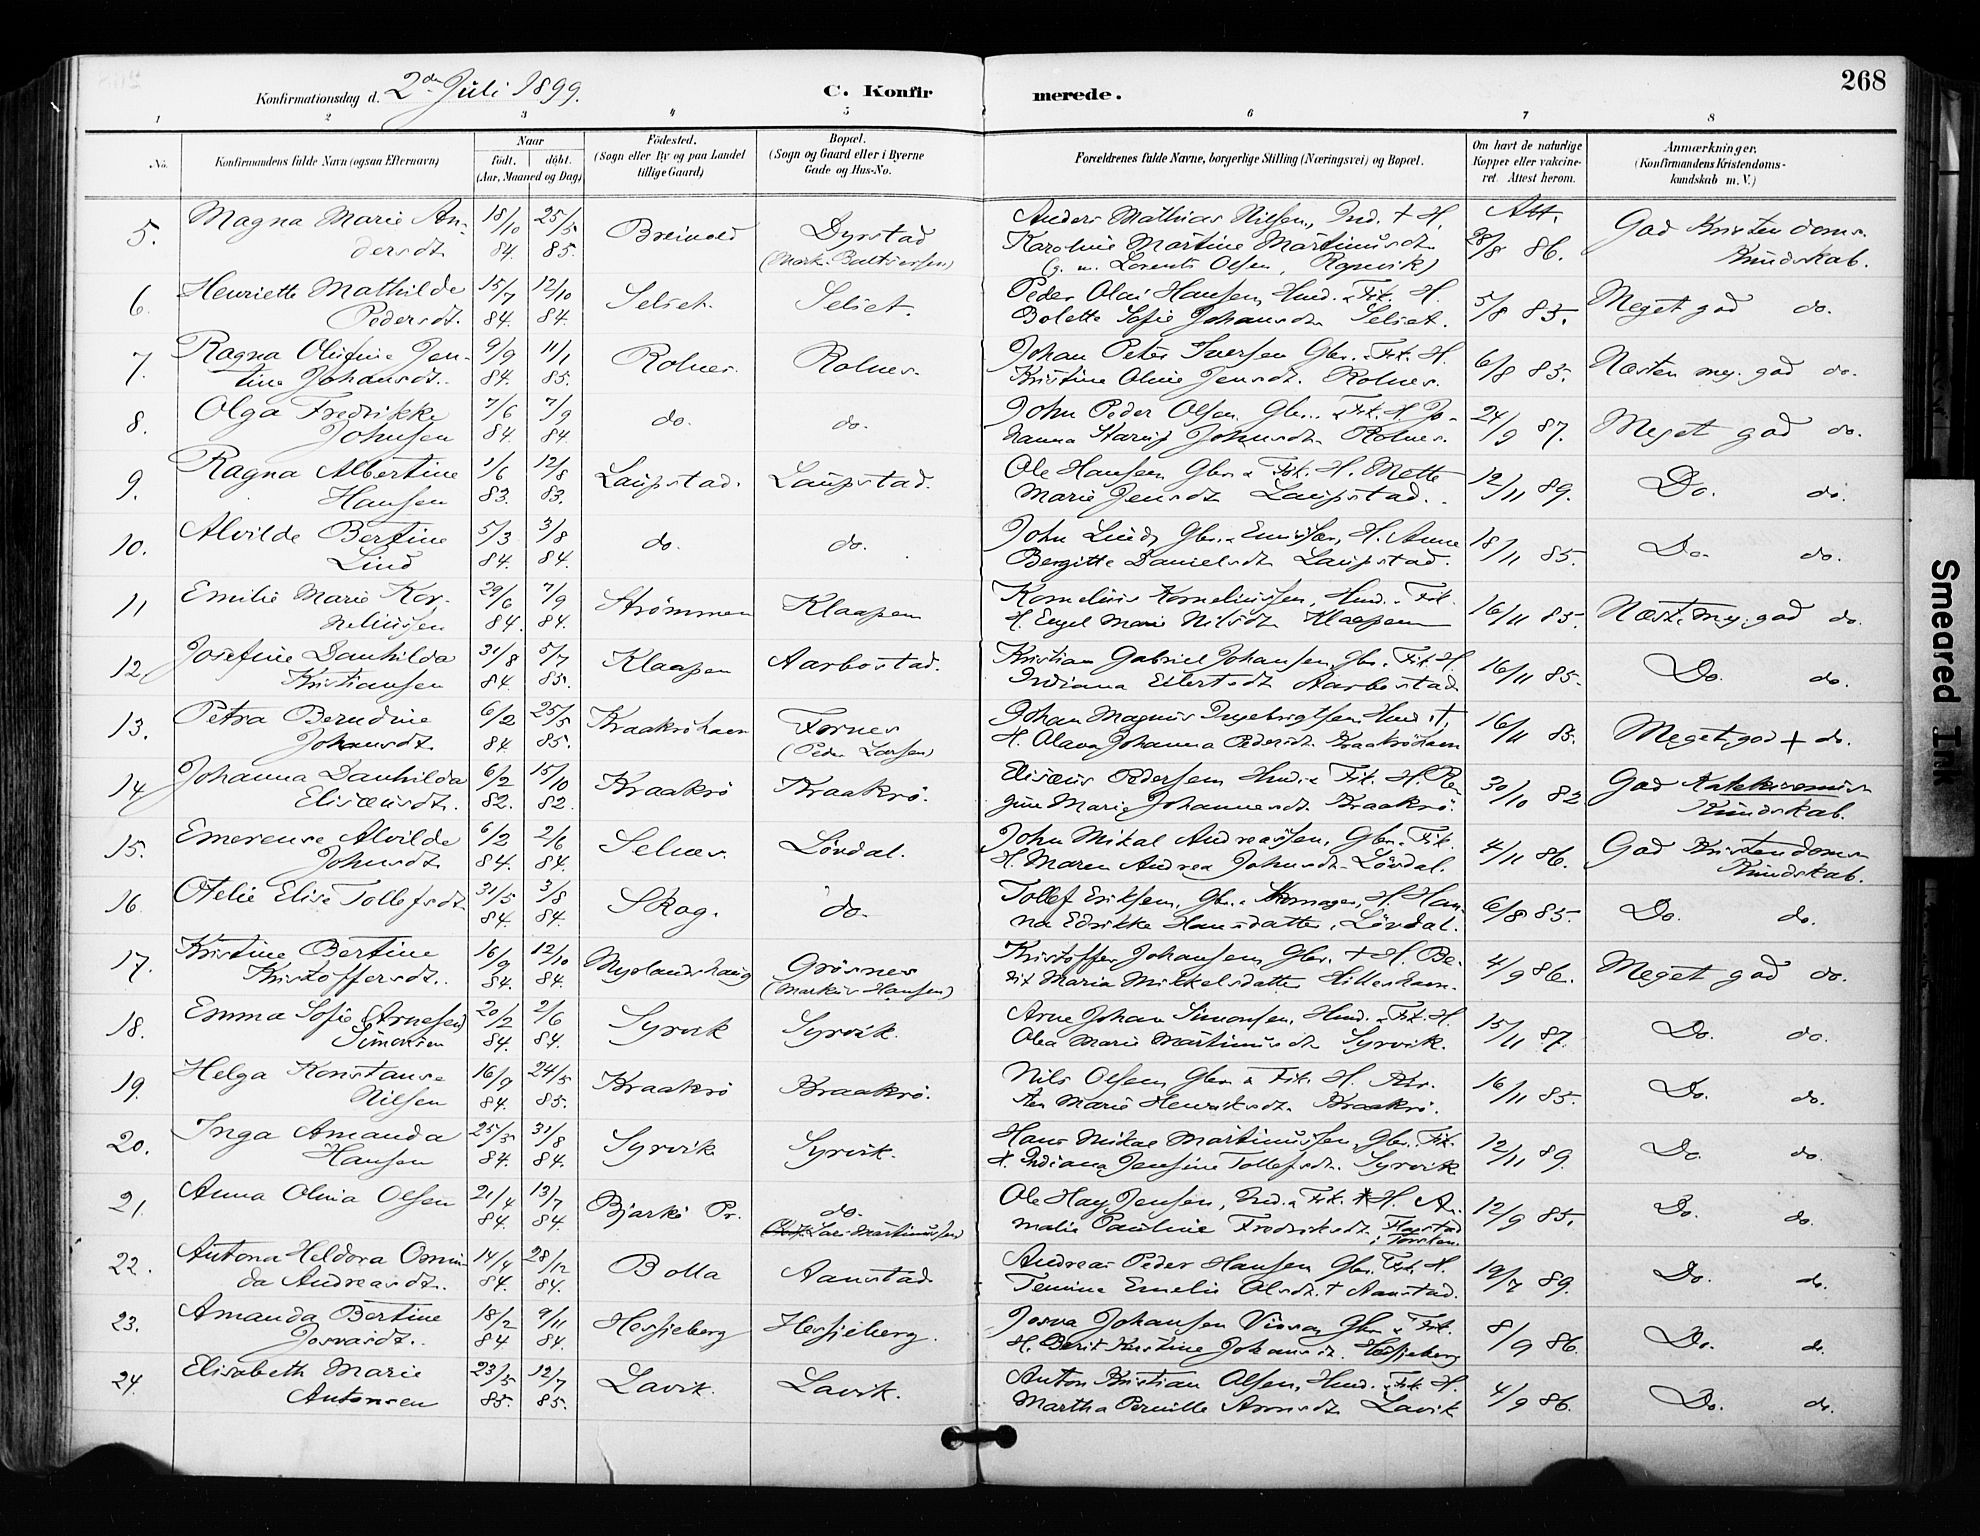 268
Konfirmationsdag d. 2den Juli 1899.
C. Konfirmerede.
1 2 3 4 5 6 7 8
No. Konfirmandens fulde Navn (ogsaa Efternavn) Naar født. døbt. (Aar, Maaned og Dag) Fødested. (Sogn eller By og paa Landet tillige Gaard) Bopæl. (Sogn og Gaard eller i Byerne Gade og Hus-No. Forældrenes fulde Navne, borgerlige Stilling (Næringsvei) og Bopæl. Om havt de naturlige Kopper eller vakcineret. Attest herom. Anmærkninger. (Konfirmandens Kristendomskundskab m. V.)
5. Magna Marie An- 18/10 25/5 Breivold Dyrstad Anders Mathias Nilsen, Ind. + H. Att. God Kristendoms-
dersdt. 84. 85. Karoline Martine Martinusdt. 28/8 86. Kundskab.
6. Henriette Mathilde 15/7 12/10 Selset. Selset. Peder Olai Hansen, Hmd. & Fisk. H. 5/8 85. Meget god do.
Pedersdt. 84. 84. Bolette Sofie Johansdt. Selset.
7. Ragna Olufine Jen- 9/9 11/1 Rolnes. Rolnes. Johan Peter Iversen Gbr. & Fisk. H. 6/8 85. Næsten meg. god do.
tine Johansdt. 84. 85. Kristine Oline Jensdt. Rolnes.
8. Olga Fredrikke 7/6 7/9 do. do. John Peder Olsen Gbr. & Fisk. H. Jo- 24/9 87. Meget god do.
Johnsen 84. 84. hanna Johnsdt. Rolnes.
9. Ragna Albertine 1/6 12/8 Laupstad. Laupstad. Ole Hansen, Gbr. & Fisk. H. Mette 12/11 89. Do. do.
Hansen 83. 83. Marie Jensdt. Laupstad.
10. Alvilde Bertine 5/3 3/8 do. do. John Lind, Gbr. & Emissær, H. Anne 18/11 85. Do. do.
Lind 84. 84. Bergitte Danielsdt. Laupstad.
11 Emilie Marie Kor- 29/6 7/9 Strømmen Klaapen Kornelius Korneliussen, Hmd. & Fisk. 16/11 85. Næst. meg. god do.
neliussen 84. 84. H. Engel Marie Nilsdt. Klaapen
12 Josefine Danhilda 31/8 5/7 Klaapen Aarbostad. Kristian Gabriel Johansen, Gbr. Fisk. H. 16/11 85. Do. do.
Kristiansen 84. 85. Indiana Eilertsdt. Aarbostad
13. Petra Berndine 6/2 25/5 Kraakrøhavn Fornes Johan Magnus Ingebrigtsen Hmd. +, 16/11 85. Meget god + do.
Johansdt. 84. 85. (Peder Larsen) H. Olava Johanna Pedersdt. Kraakrøhavn
14 Johanna Danhilda 6/2 15/10 Kraakrø Kraakrø. Elisæus Pedersen Hmd. & Fisk. H. Re- 30/10 82 God Katekismus
Elisæusdt. 82. 82. gine Marie Johannesdt. Kraakrø. Kundskab.
15. Emerense Alvilde 6/2 2/6 Selnes. Løvdal. John Mikal Andreassen, Gbr. & Fisk. 4/11 86. God Kristendoms-
Johnsdt. 84. 84. H. Maren Andrea Johnsdt. Løvdal. Kundskab.
16. Otelie Elise Tollefsdt. 31/5 3/8 Skog. do. Tollef Eriksen, Gbr. & Skomager, H. Han- 6/8 85. Do. do.
84. 84. na Edrikke Hansdatter, Løvdal.
17. Kristine Bertine 16/9 12/10 Myrlandshaug Grøsnes Kristoffer Johansen, Gbr. + H. Be- 4/9 86. Meget god do.
Kristoffersdt. 84. 84. (Markus Hansen) rit Maria Mikkelsdatter Hilleshavn.
18. Emma Sofie (Arnesen) 20/2 2/6 Syrvik Syrvik. Arne Johan Simonsen, Hmd. & Fisk. H. 15/11 87. Do. do.
Simonsen 84. 84. Olea Marie Martinusdt. Syrvik.
19. Helga Konstanse 16/9 24/5 Kraakrø Kraakrø. Nils Olsen Gbr. & Fisk. H. Kir- 16/11 85. Do. do.
Nilsen 84. 85. sten Marie Henriksdt. Kraakrø.
20. Inga Amanda 25/5 31/8 Syrvik Syrvik. Hans Mikal Martinussen, Gbr. Fisk. 12/11 89. Do. do.
Hansen 84. 84. H. Indiana Jensine Tollefsdt. Syrvik
21. Anna Olina Olsen 21/4 13/7 Bjarkø Pr. do. Ole Hay Jensen, Ind. & Fisk. H. A- 12/9 85. Do. do.
84. 84. Martinussen) malie Pauline Fredriksdt. Flagstad i Torsken
22. Antona Heldora Osmun- 14/4 28/12 Bolla Aanstad Andreas Peder Hansen Gbr. Fisk. H. 19/7 89. Do. do.
da Andreasdt. 84. 84. Temina Emelie Olsdt. + Aanstad.
23. Amanda Bertine 18/2 9/11 Hessjeberg Hessjeberg. Josva Johansen Gbr. & Fisk. 8/9 86. Do. do.
Josvasdt. 84 84. H. Berit Kirstine Johansdt. Hessjeberg
24. Elisabeth Marie 23/5 12/7 Lavik. Lavik. Anton Kristian Olsen, Hmd. & Fisk. H. 4/9 86. Do. do.
Antonsen 85. 85. Martha Pernille Arnesdt. Lavik
Smeared Ink